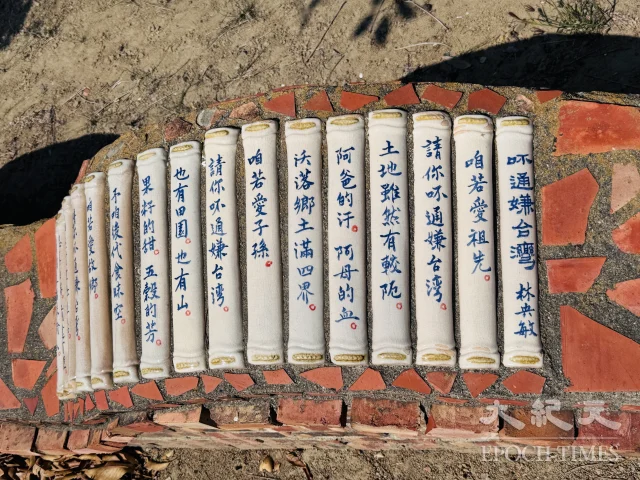 吥通嫌台灣 林央敏
咱若愛祖先
請你吥通嫌台灣
土地雖然有較阨
阿爸的汗 阿母的血
沃落鄉土滿四界
咱若愛子孫
請你吥通嫌台灣
也有田園 也有山
果籽的甜 五穀的芳
咱後代食昧空
咱若愛故鄉
大紀元
EPOCH TIMES